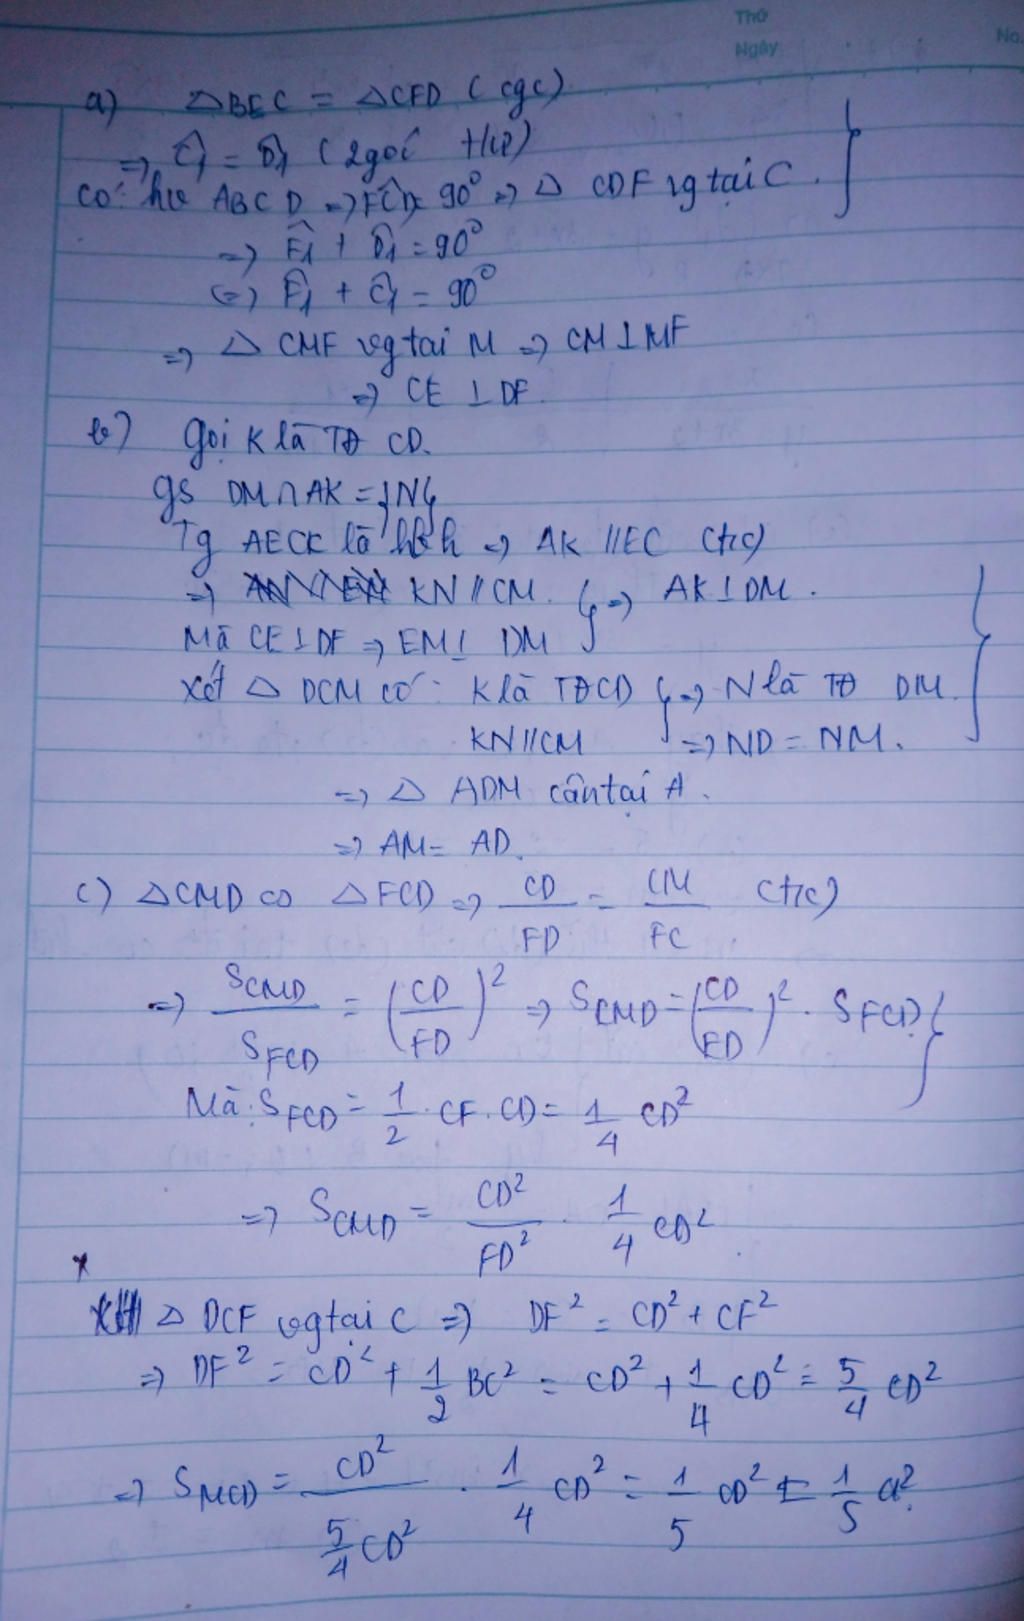 Thứ
Ngày
No.
a) △BEC = △CFD (cgc)
=> Ĉ₁ = D̂₁ (2góc t/ứ)
Có: hv ABCD => FĈD = 90° => △ CDF vg tại C.
=> F̂₁ + D̂₁ = 90°
<=> F̂₁ + Ĉ₁ = 90°
=> △ CMF vg tại M => CM ⊥ MF
=> CE ⊥ DF.
b) Gọi K là TĐ CD.
gs DM ∩ AK = {N}
Tg AECK là hbh => AK // EC (t/c)
=> KN // CM. } => AK ⊥ DM.
Mà CE ⊥ DF => EM ⊥ DM
Xét △ DCM có: K là TĐ CD } => N là TĐ DM.
KN // CM => ND = NM.
=> △ ADM cân tại A.
=> AM = AD.
c) △CMD ∽ △FCD => CD/FD = CM/FC (t/c)
=> S_CMD/S_FCD = (CD/FD)² => S_CMD = (CD/FD)² . S_FCD }
Mà: S_FCD = 1/2 . CF . CD = 1/4 CD²
=> S_CMD = CD²/FD² . 1/4 CD².
x
△ DCF vg tại C => DF² = CD² + CF²
=> DF² = CD² + 1/2 BC² = CD² + 1/4 CD² = 5/4 CD²
=> S_MCD = CD²/(5/4 CD²) . 1/4 CD² = 1/5 CD² = 1/5 a².